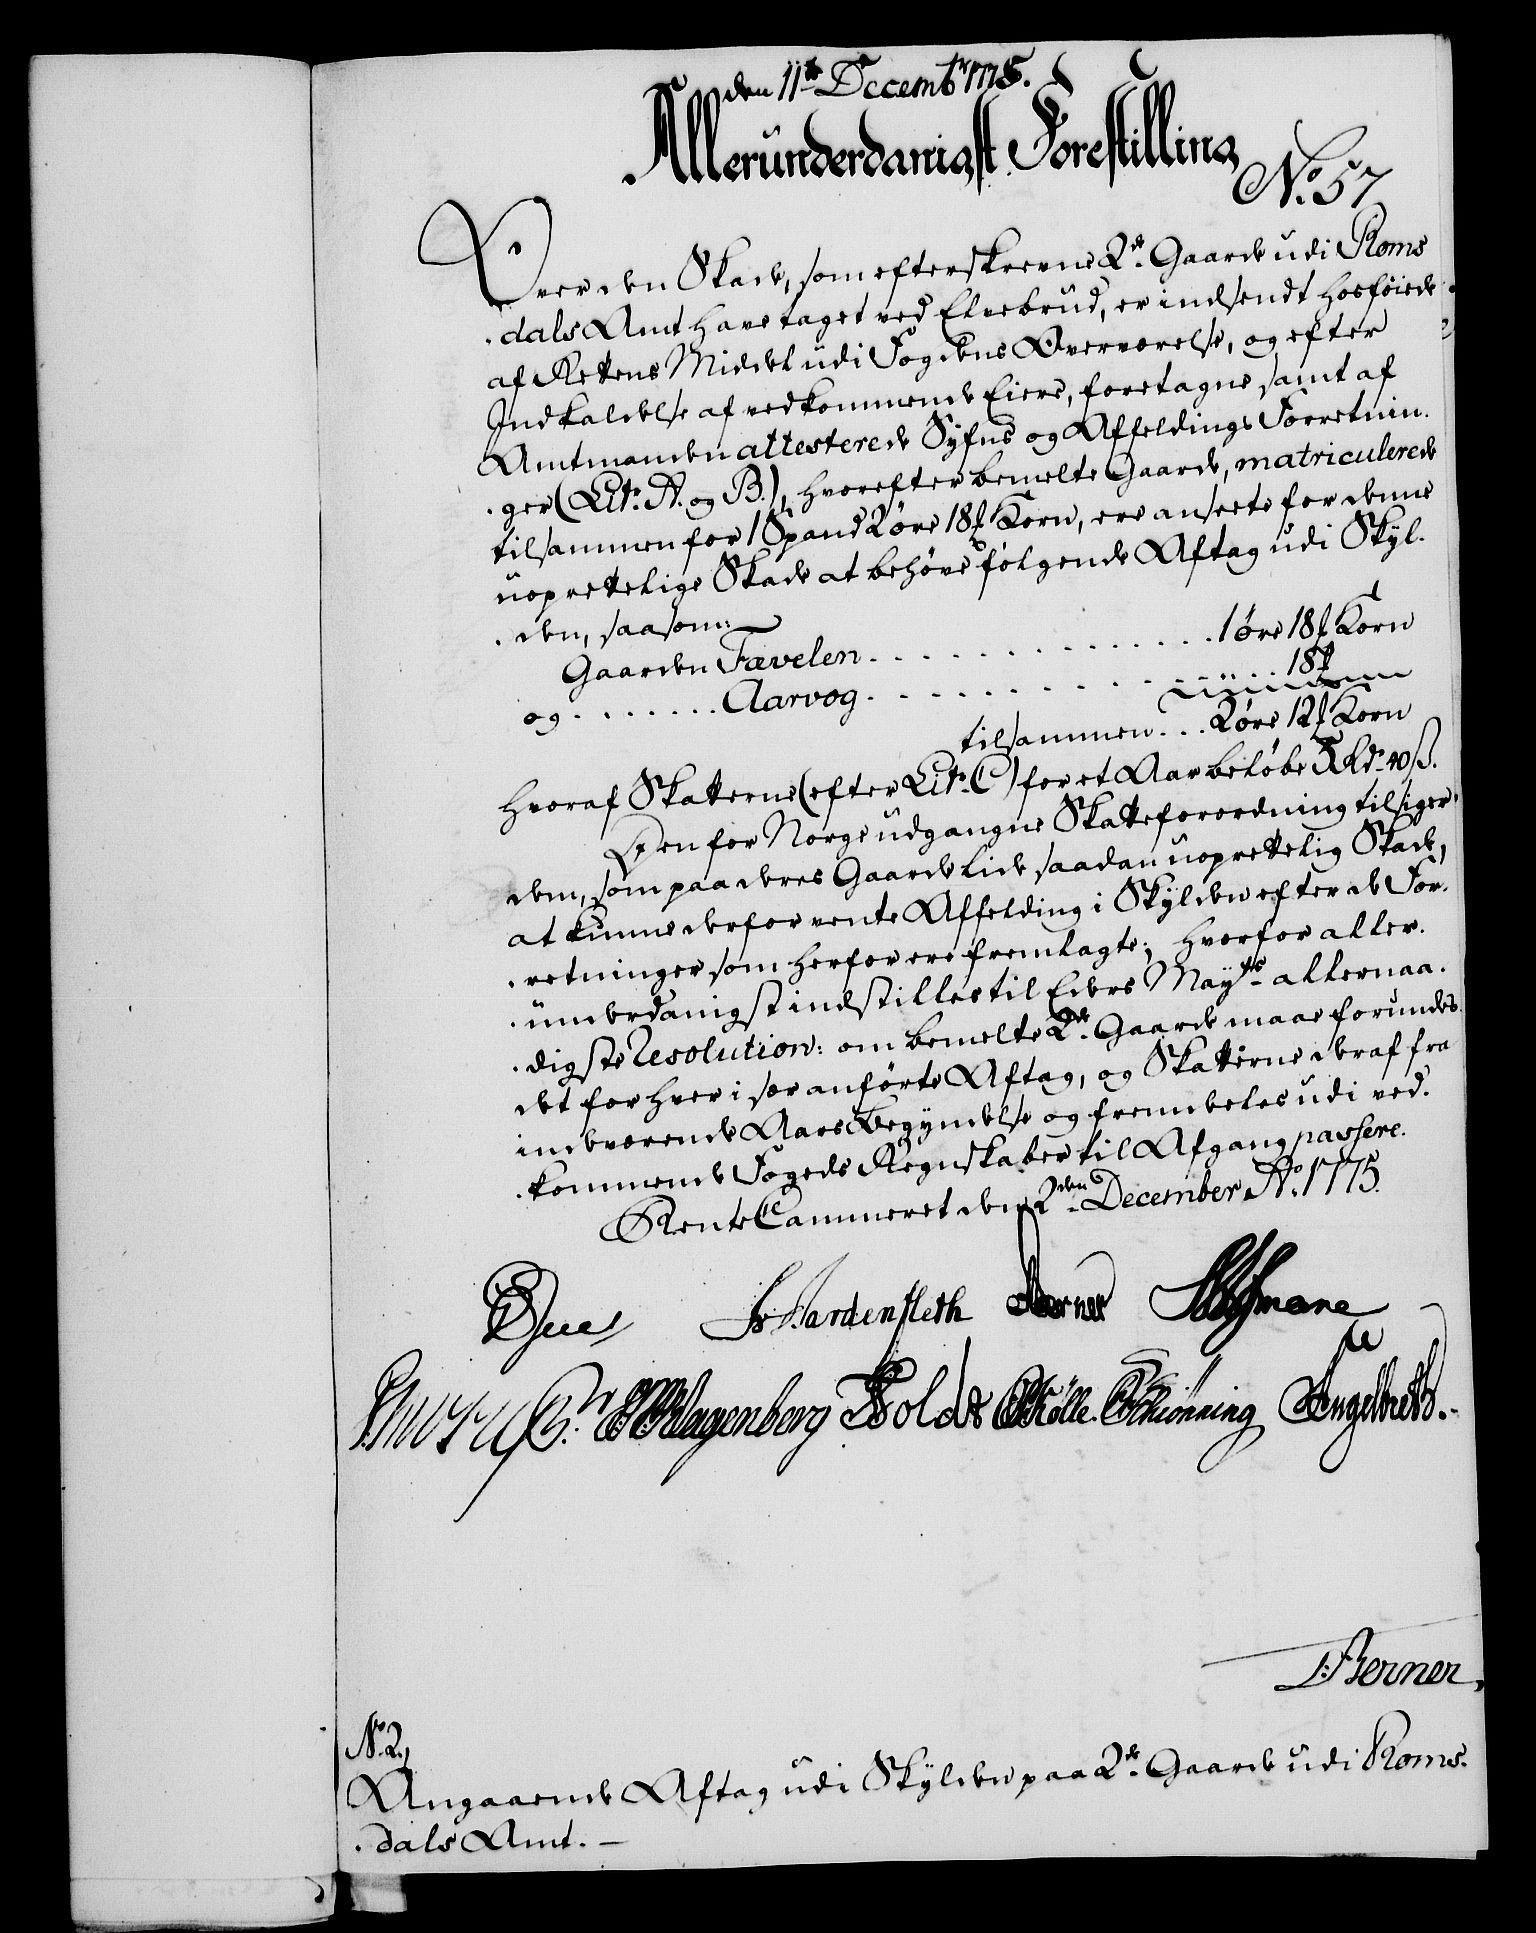 den 11te Decembr 1775.
Allerunderdanigst Forestilling
No. 57
Over den Skade, som efterskrevne 2de Gaarde udi Roms
dals Amt have taget ved Elvebrud, er indsendt hosføiede
af Rettens Middel udi Fogdens Overværelse, og efter
Indkaldelse af vedkommende Eiere, foretagne samt af
Amtmanden attesterede Syfns og Affeldings Forretnin-
ger (Litr. A. og B.), hvorefter bemelte Gaarde, matriculerede
tilsammen for 1 Spand 2 øre 18 ℔ Korn, ere ansette for denne
uoprettelige Skade at behøve følgende Aftag udi Skyl-
den, saasom:
Gaarden Fævelen . . . . . . . . . . . . . 1 øre 18 ℔ Korn
og . . . . . . . Aarvog . . . . . . . . . . . . . 18 ℔
tilsammen . . . 2 øre 12 ℔ Korn
hvoraf Skatterne (efter Litr. C) for et Aar beløbe 5 Rdr. 40 ß.
Den for Norge udgangne Skatteforordning tilsiger
dem, som paa deres Gaarde lide saadan uoprettelig Skade,
at kunne derfor vente Affelding i Skylden efter de For-
retninger som herfor ere fremlagte; hvorfor aller-
underdanigst indstilles til Eders Mayts allernaa-
digste Resolution: om bemelte 2de Gaarde maae forundes
det for hver i sær anførte Aftag, og Skatterne deraf fra
indeværende Aars Begyndelse og fremdeles udi ved-
kommende Fogeds Regnskaber til Afgang passere.
Rente Cammeret den 2den December Ao. 1775.
Hardenfleth Berner
Wagenberg Holdt Kölle. Schiönning Engelbreth.
Berner,
No. 2,
Angaaende Aftag udi Skylden paa 2de Gaarde udi Roms-
dals Amt. –